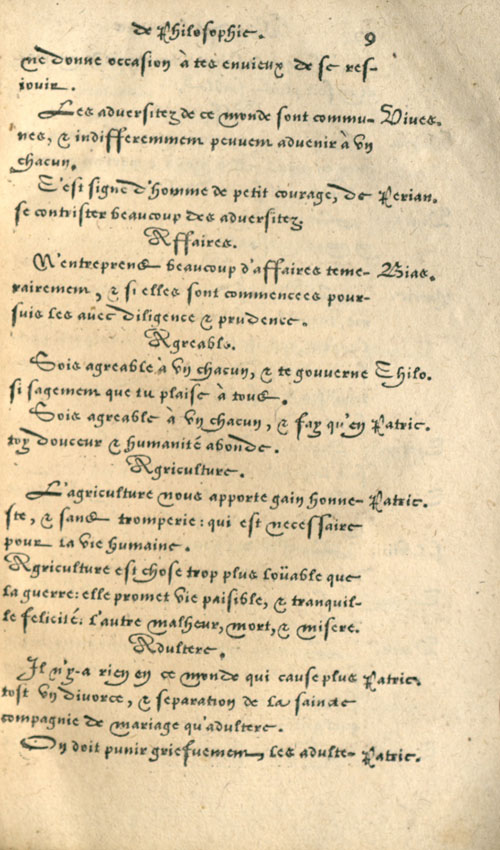 de Philosophie. 9
ne donne occasion à tes envieux de se res-
iouir.
Les adversitez de ce monde sont commu- Vives.
nes, & indifferemment peuvent advenir à vn
chacun.
C'est signe d'homme de petit courage, de Perian.
se contrister beaucoup des adversitez.
Affaires.
N'entreprens beaucoup d'affaires teme- Bias.
rairement, & si elles sont commencees pour-
suis les auec diligence & prudence.
Agreable.
Sois agreable à vn chacun, & te gouuerne Chilo.
si sagement que tu plaise à tous.
Sois agreable à vn chacun, & fay qu'en Patric.
toy douceur & humanité abonde.
Agriculture.
L'agriculture nous apporte gain honne- Patric.
ste, & sans tromperie: qui est necessaire
pour la vie humaine.
Agriculture est chose trop plus loüable que
la guerre: elle promet vie paisible, & tranquil-
le felicité: l'autre malheur, mort, & misere.
Adultere.
Il n'y-a rien en ce monde qui cause plus Patric.
tost vn divorce, & separation de la saincte
compagnie de mariage qu'adultere.
On doit punir griefuement, les adulte- Patric.